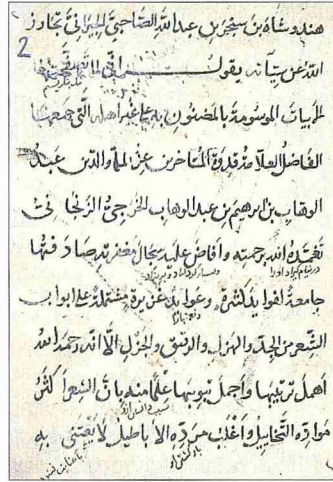 هندوشاه بن سنجر بن عبد الله الصاحبي الجيراني تجاوز
2
الله عن سيآته يقول
للابيات الموسومة بالمضنون به على غير اهله التي جمعها
الفاضل العلامة قدوة المتاخرين عز الملة والدين عبد
الوهاب بن ابرهيم بن عبد الوهاب الخزرجي الزنجاني
تغمده الله برحمته وافاض عليه سجال مغفرته صادفتها
جامعة لفوايد كثيرة وعوايد غزيرة مشتملة على ابواب
الشعر من الجد والهزل والرقيق والجزل الا انه رحمه الله
اهمل ترتيبها واجمل تبويبها علما منه بان الشعر اكثر
موارده التخاييل واغلب سرده الاباطيل لا يعتنى به